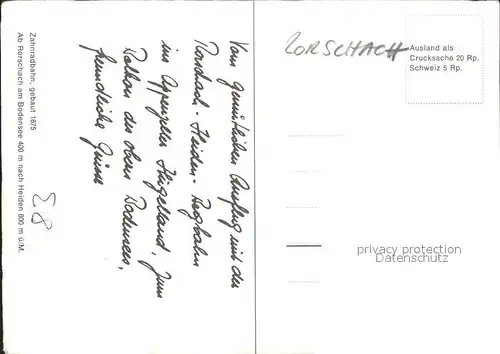 Zahnradbahn, gebaut 1875
Ab Rorschach am Bodensee 400 m nach Heiden 800 m ü/M.
Vom gemütlichen Ausflug mit der
Rorschach-Heiden-Bergbahn
ins Appenzeller Hügelland, zum
Balkon des obern Bodensees,
freundliche Grüsse
E8
RORSCHACH
Ausland als
Drucksache 20 Rp.
Schweiz 5 Rp.
privacy protection
Datenschutz